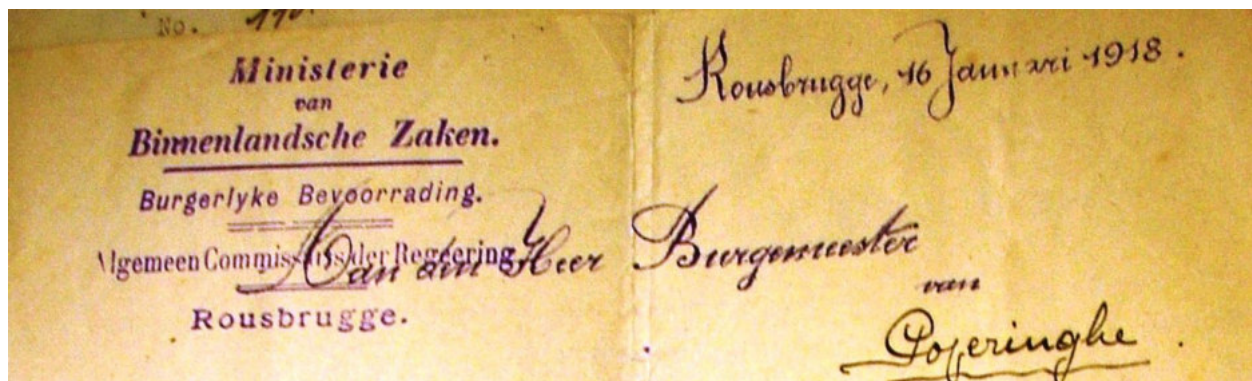 No. 110.
Ministerie
van
Binnenlandsche Zaken.
Burgerlyke Bevoorrading.
Algemeen Commissaris der Regeering
Rousbrugge.
Rousbrugge, 16 Januari 1918.
Aan den Heer Burgemeester
van
Poperinghe.